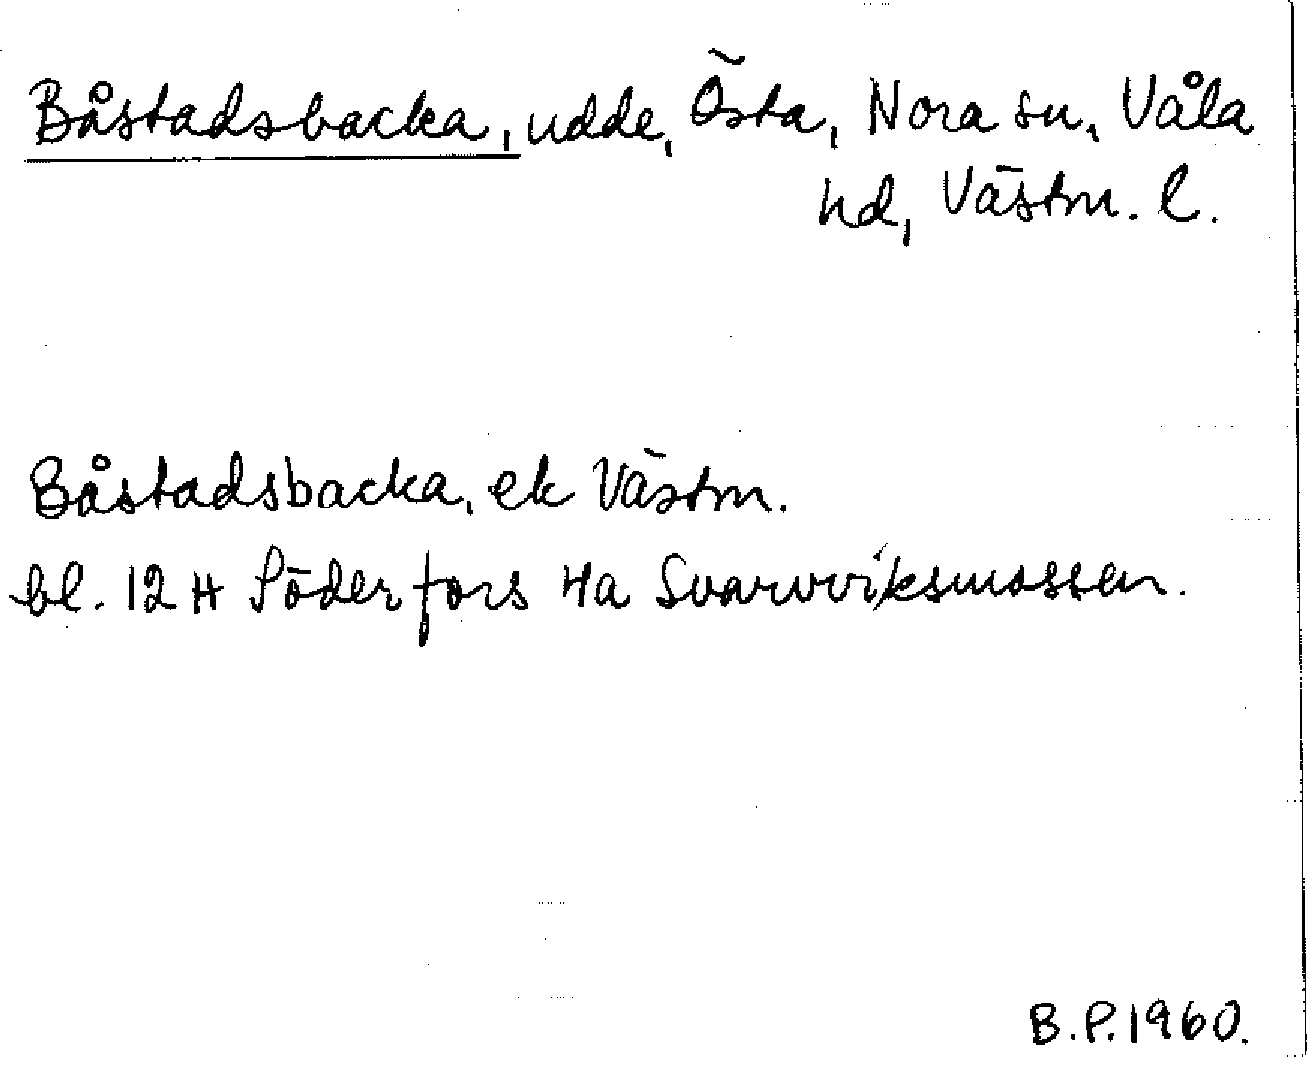 Båstadsbacka, udde, Östa, Nora sn, Våla
hd, Västm. l.
Båstadsbacka, ek Västm.
bl. 12 H Söderfors 4a Svarvviksmossen.
B.P. 1960.